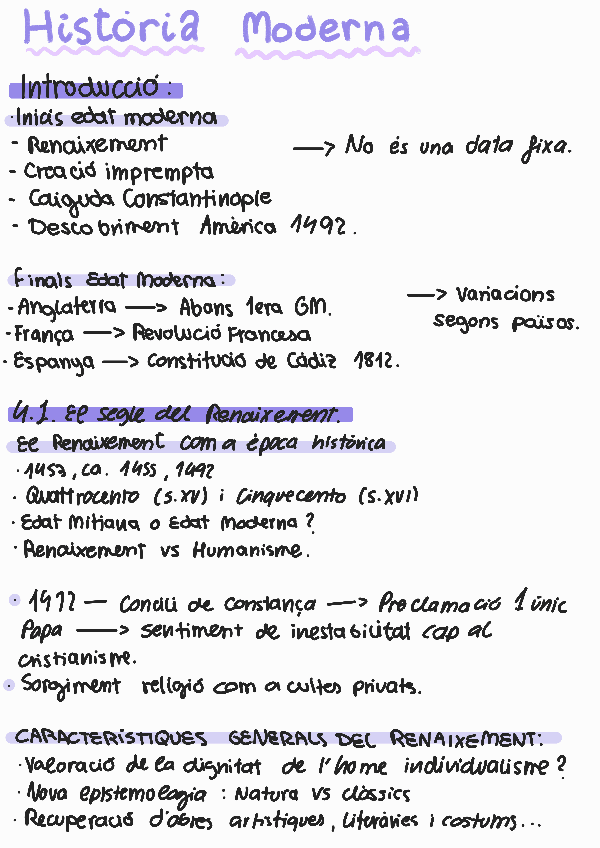 Història Moderna
Introducció:
· Inicis edat moderna
- Renaixement → No és una data fixa.
- Creació imprempta
- Caiguda Constantinople
- Descobriment Amèrica 1492.
Finals Edat Moderna:
- Anglaterra → Abans 1era GM. → Variacions
- França → Revolució Francesa segons països.
· Espanya → Constitució de Cádiz 1812.
4.1. El segle del Renaixement.
El Renaixement com a època històrica
· 1453, ca. 1455, 1492
· Quattrocento (s.XV) i Cinquecento (s.XVI)
· Edat Mitjana o Edat Moderna?
· Renaixement vs Humanisme.
· — Concili de Constança → Proclamació 1 únic
Papa → sentiment de inestabilitat cap al
cristianisme.
· Sorgiment religió com a cultes privats.
CARACTERÍSTIQUES GENERALS DEL RENAIXEMENT:
· Valoració de la dignitat de l'home individualisme?
· Nova epistemologia: Natura vs clàssics
· Recuperació d'obres artístiques, literàries i costums...